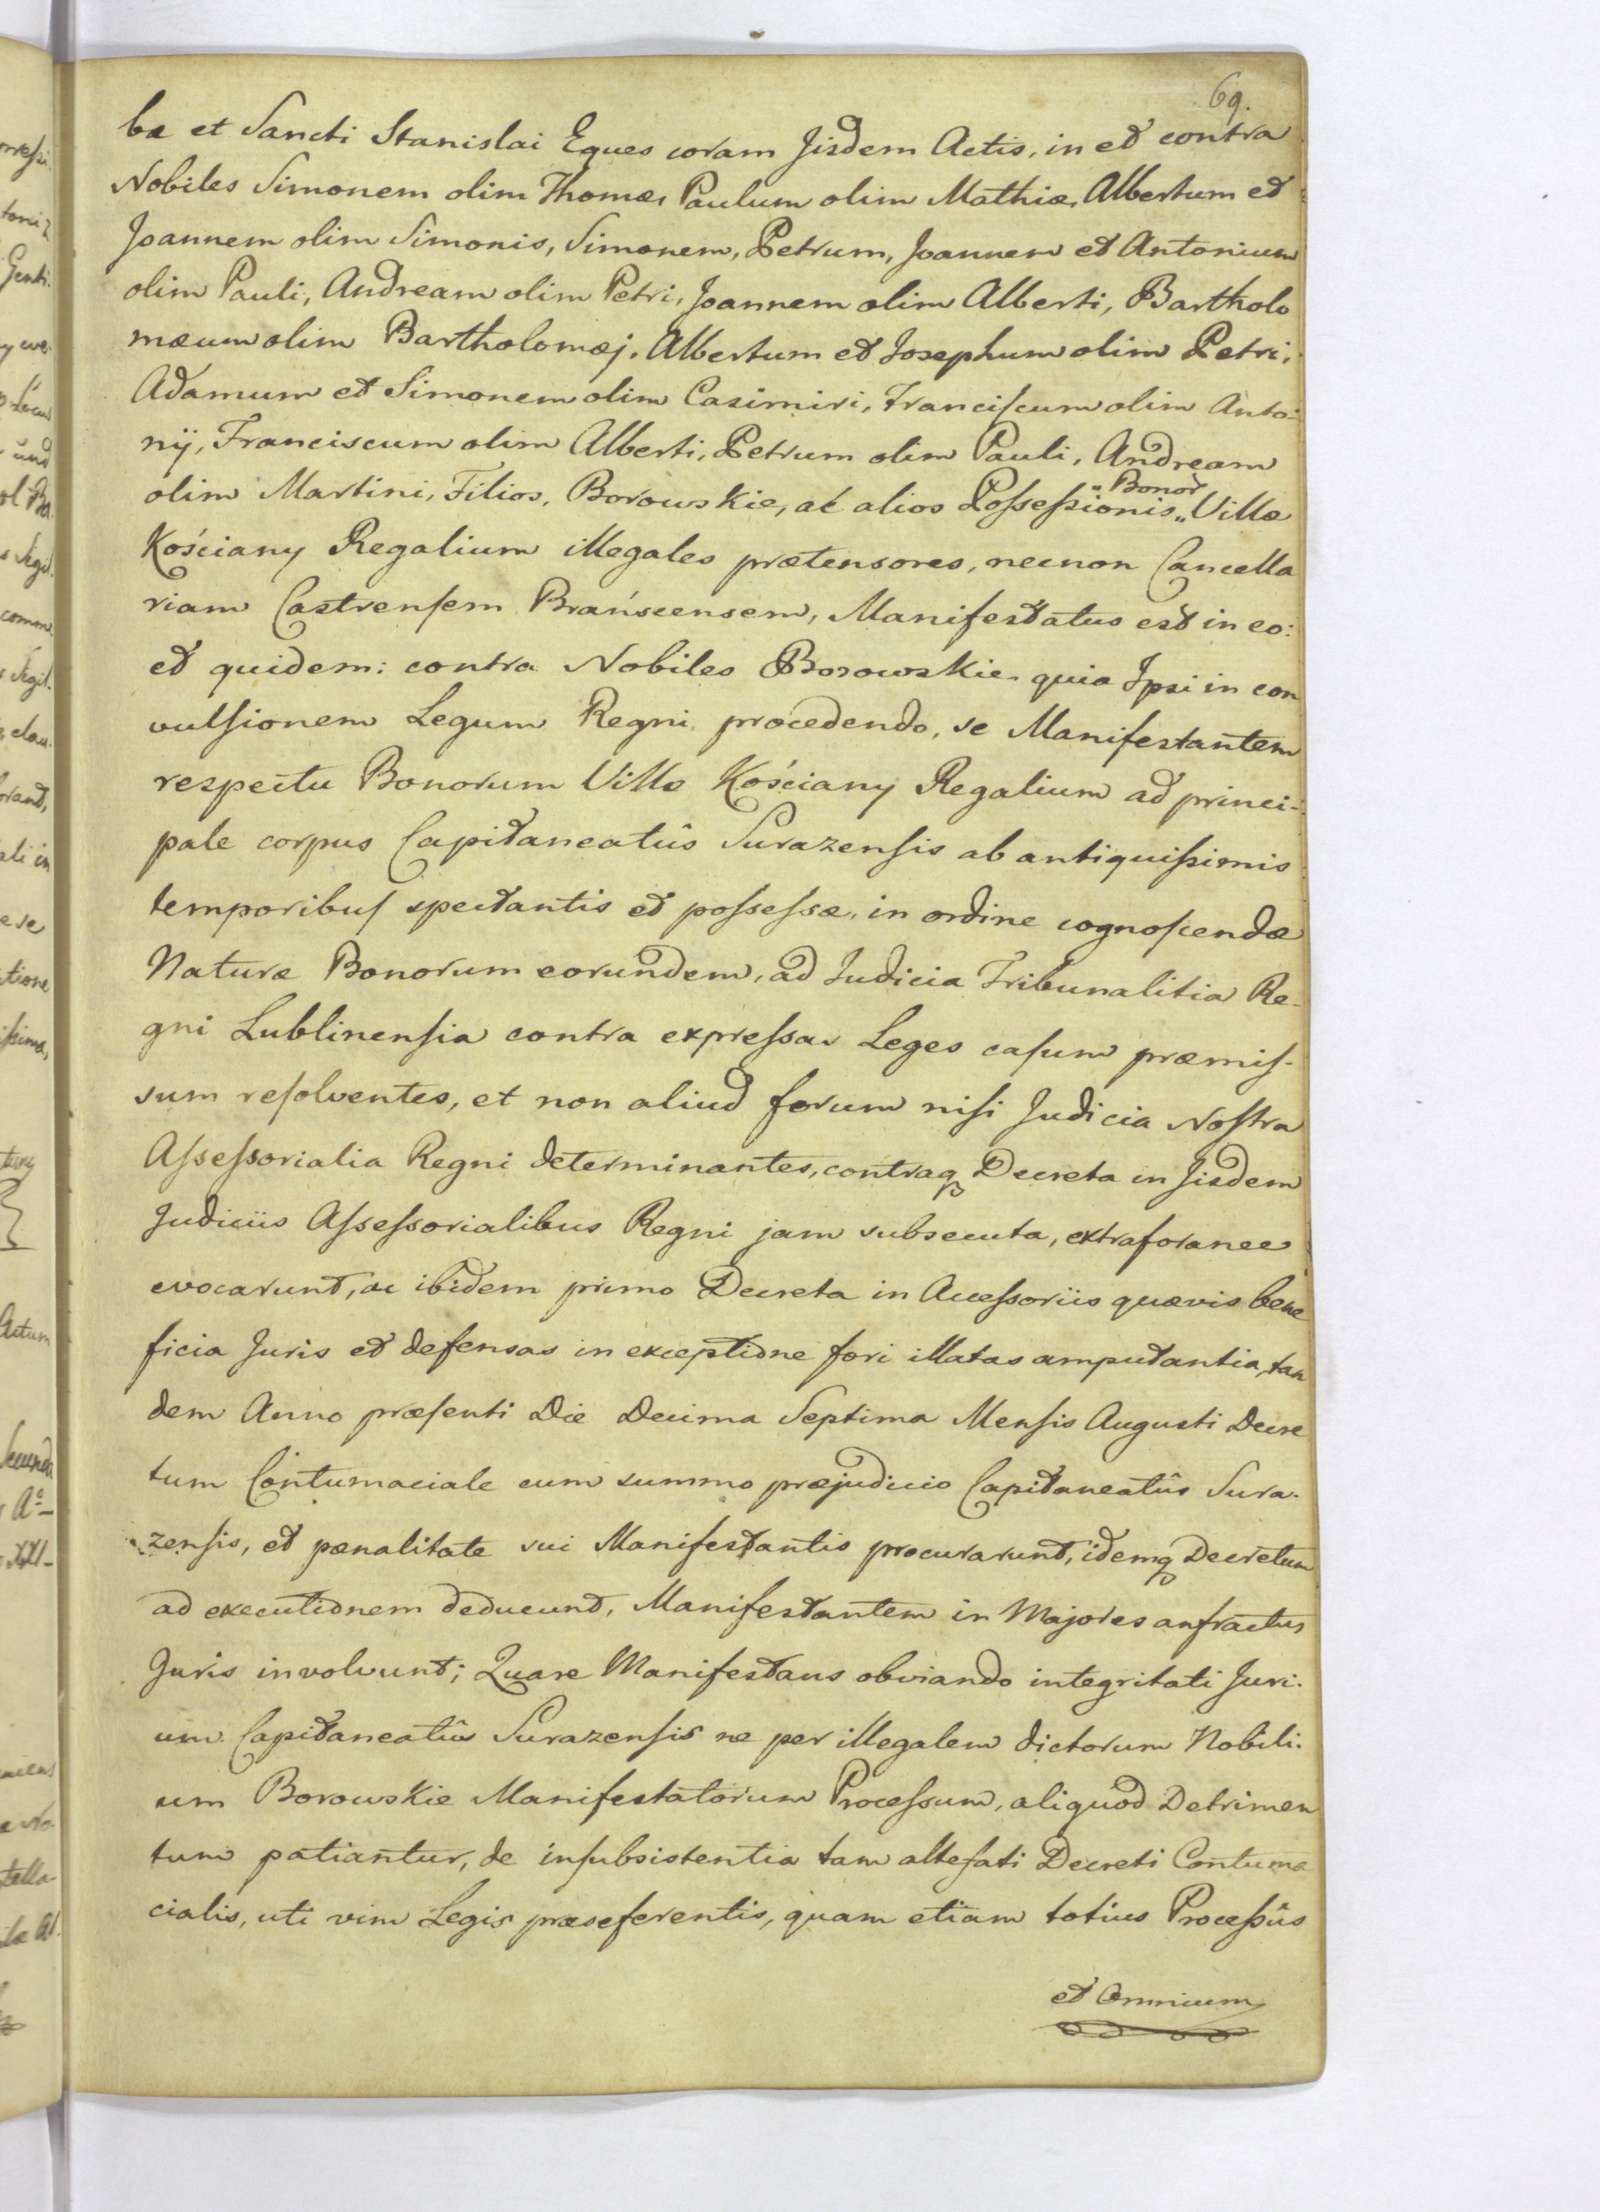 69.
bæ et Sancti Stanislai Eques coram Jisdem Actis, in et contra
Nobiles Simonem olim Thomæ, Paulum olim Mathiæ, Albertum et
Joannem olim Simonis, Simonem, Petrum, Joannem et Antonium
olim Pauli, Andream olim Petri, Joannem olim Alberti, Bartholo
mæum olim Bartholomæj, Albertum et Josephum olim Petri,
Adamum et Simonem olim Casimiri, Franciscum olim Anto-
nij, Franciscum olim Alberti, Petrum olim Pauli, Andream
olim Martini, Filios, Borowskie, ac alios Possessionis „ Bonor „ Villæ
Kościany Regalium illegales prætensores, necnon Cancella
riam Castrensem Brańscensem, Manifestatus est in eo:
et quidem: contra Nobiles Borowskie. quia Ipsi in con
vulsionem Legum Regni procedendo, se Manifestantem
respectu Bonorum Villæ Kościany Regalium ad princi-
pale corpus Capitaneatûs Surazensis ab antiquissimis
temporibus spectantis et possessæ, in ordine cognoscendæ
Naturæ Bonorum eorundem, ad Judicia Tribunalitia Re-
gni Lublinensia contra expressas Leges casum præmis-
sum resolventes, et non aliud forum nisi Judicia Nostra
Assessorialia Regni determinantes, contraq Decreta in Jisdem
Judiciis Assessorialibus Regni jam subsecuta, extraforanee
evocarunt, ac ibidem primo Decreta in Accessoriis quævis bene
ficia Juris et defensas in exceptione fori illatas amputantia, tan
dem Anno præsenti Die Decima Septima Mensis Augusti Decre
tum Contumaciale cum summo præjudicio Capitaneatûs Sura-
zensis, et pænalitate sui Manifestantis procurarunt, idemq Decretum
ad executionem deducunt, Manifestantem in Majores anfractus
Juris involvunt; Quare Manifestans obviando integritati Juri-
um Capitaneatûs Surazensis ne per illegalem dictorum Nobili-
um Borowskie Manifestatorum Processum, aliquod Detrimen
tum patiantur, de insubsistentia tam altefati Decreti Contuma
cialis, uti vim Legis præseferentis, quam etiam totius Processûs
et Omnium